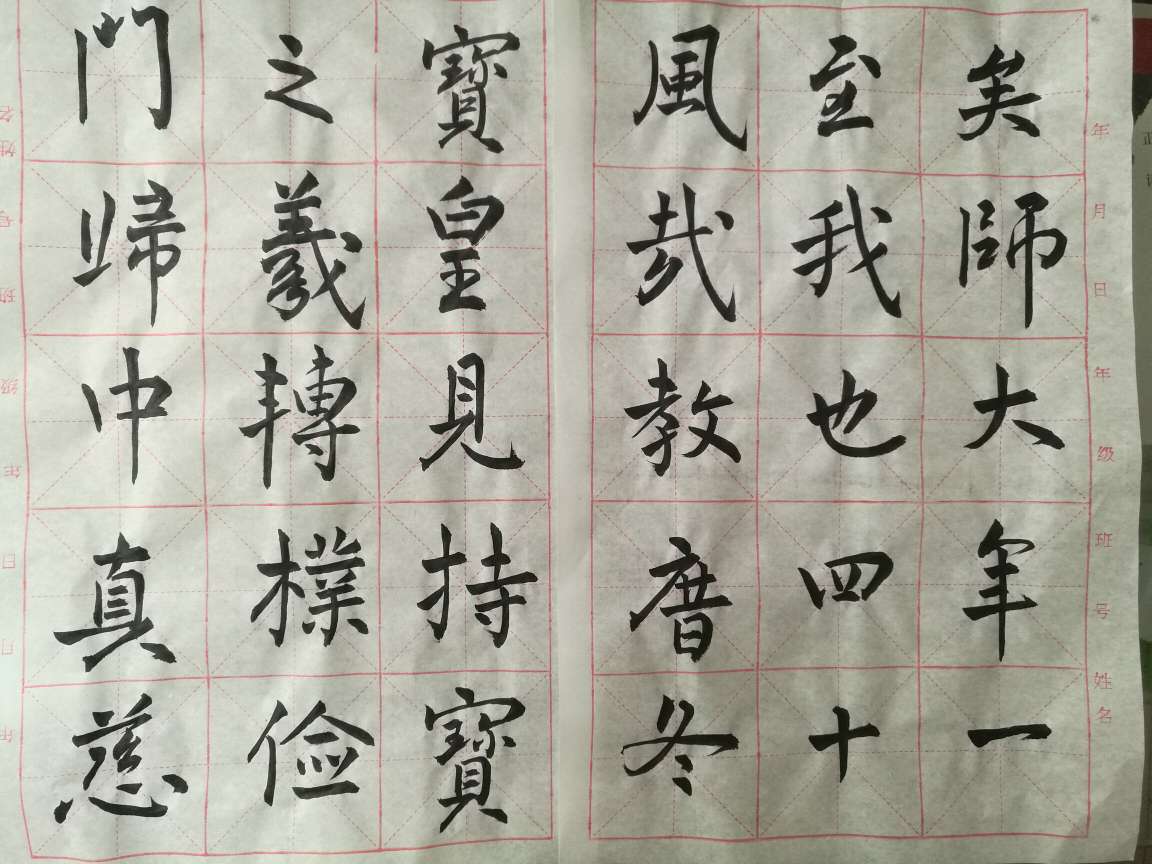 門之寶
歸羲皇
中轉見
真樸持
慈儉寶
風至矣
哉我師
教也大
曆四年
冬十一
年 月 日
年 级 班 号 姓名